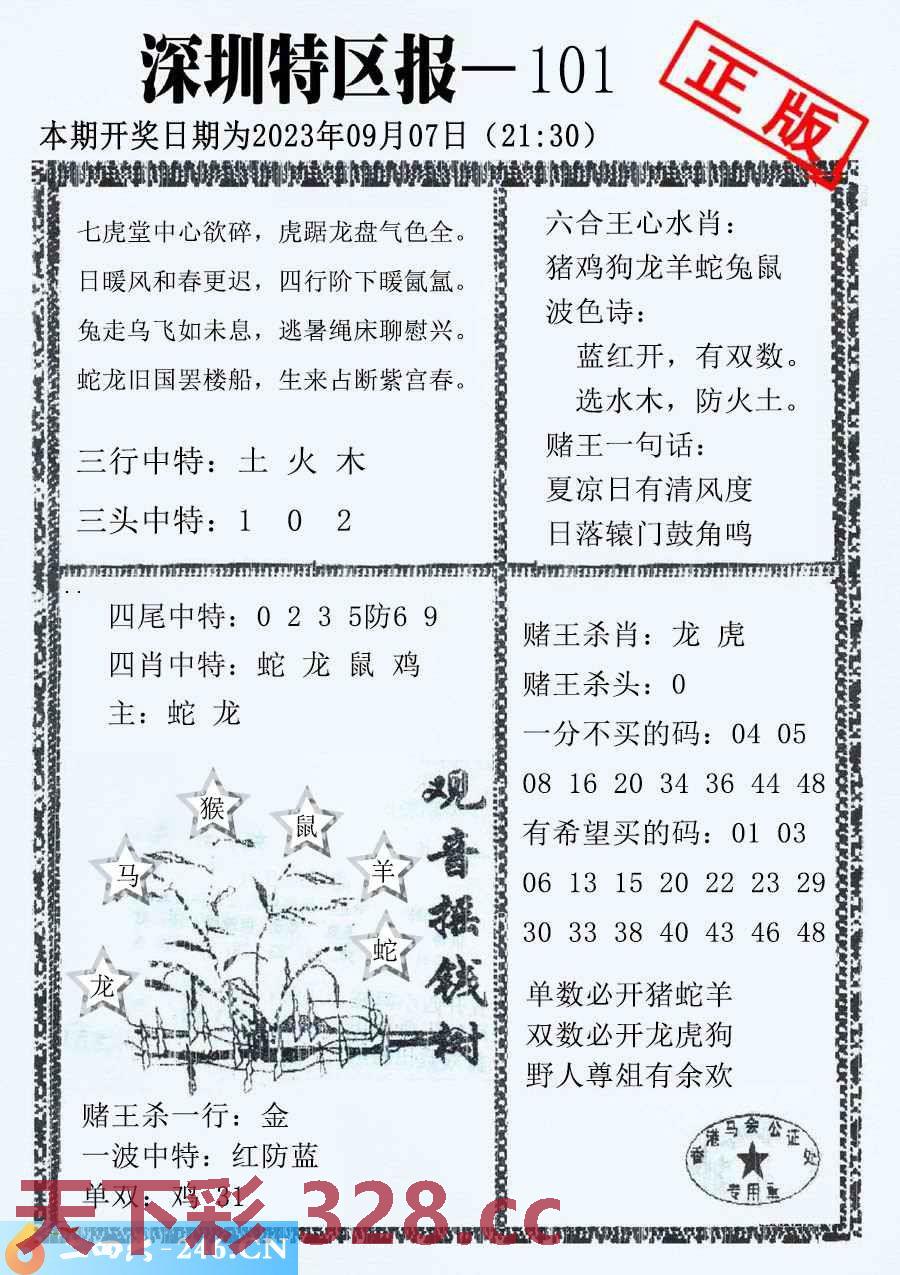 深圳特区报—101
正版
本期开奖日期为2023年09月07日（21:30）
七虎堂中心欲碎，虎踞龙盘气色全。
日暖风和春更迟，四行阶下暖氤氲。
兔走乌飞如未息，逃暑绳床聊慰兴。
蛇龙旧国罢楼船，生来占断紫宫春。
三行中特：土 火 木
三头中特：1 0 2
六合王心水肖：
猪鸡狗龙羊蛇兔鼠
波色诗：
蓝红开，有双数。
选水木，防火土。
赌王一句话：
夏凉日有清风度
日落辕门鼓角鸣
四尾中特：0 2 3 5防6 9
四肖中特：蛇 龙 鼠 鸡
主：蛇 龙
猴
鼠
马
羊
蛇
龙
观音摇钱树
赌王杀一行：金
一波中特：红防蓝
单双：鸡 31
赌王杀肖：龙 虎
赌王杀头：0
一分不买的码：04 05
08 16 20 34 36 44 48
有希望买的码：01 03
06 13 15 20 22 23 29
30 33 38 40 43 46 48
单数必开猪蛇羊
双数必开龙虎狗
野人尊俎有余欢
香港马会公证处
专用章
天下彩 328.cc
-246.CN